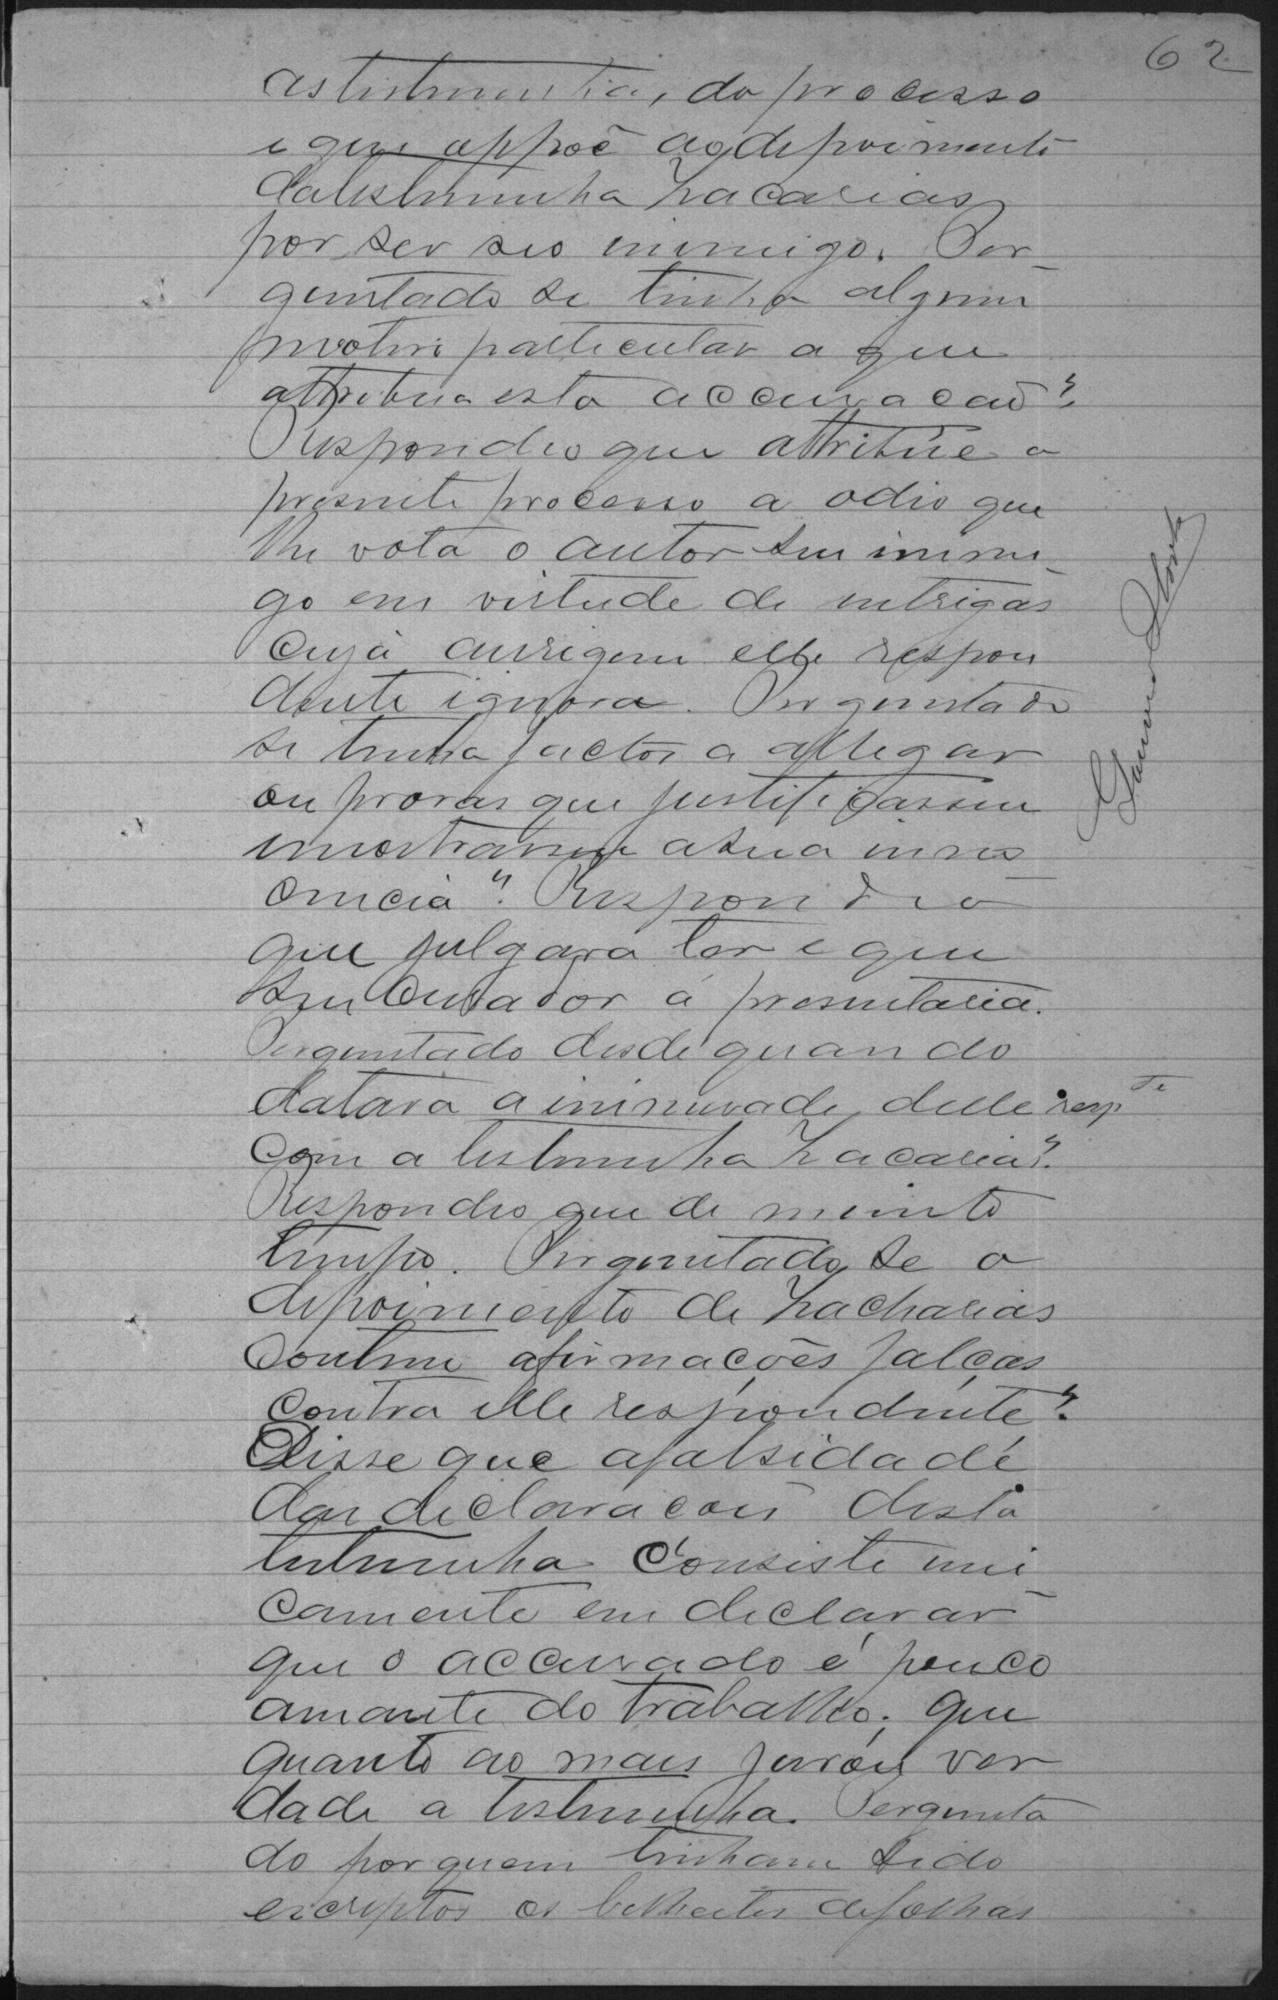 62
as testemunhas, do processo
e que appoê ao depoimento
da testemunha Zacarias
por ser seo inimigo. Per-
guntado se tinha algum
motivo particular a que
attribuia esta accusacaõ?
Respondeo que attribúe o
presente processo a odio que
lhe vota o autor seu inimi-
go em virtude de intrigas
cuja aurigem elle respon
dente ignora. Perguntado
se tinha factos a allegar
ou provas que justificassem
e mostrassem a sua inno
cencia? Respondeo
que julgava ter e que
seu Curador á presentaria.
Perguntado desde quando
datava a inimisade delle resp.te
com a testemunha Zacarias?
Respondeo que de muito
tempo. Perguntado se o
depoimento de Zacharias
contem afirmações falças
contra elle respondente?
Disse que a falsidade
das declaracoes desta
testemunha consiste uni
camente em declarar
que o accusado é pouco
amante do trabalho; que
quanto ao mais jurou ver
dade a testemunha. Pergunta
do por quem tinham sido
escriptos os bilhetes de folhas